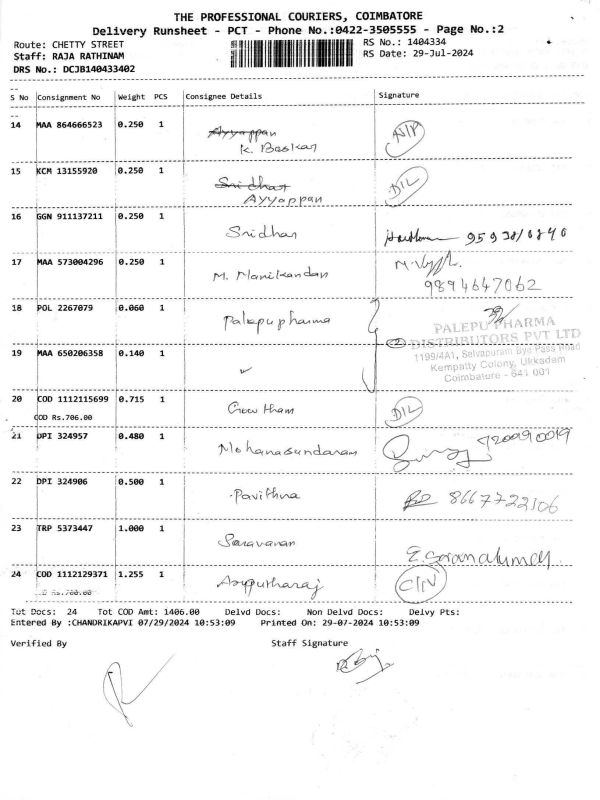 THE PROFESSIONAL COURIERS, COIMBATORE
Delivery Runsheet - PCT - Phone No.:0422-3505555 - Page No.:2
Route: CHETTY STREET RS No.: 1404334
Staff: RAJA RATHINAM RS Date: 29-Jul-2024
DRS No.: DCJB140433402
S No Consignment No Weight PCS Consignee Details Signature
14 MAA 864666523 0.250 1 Ayyappan
K. Baskar
15 KCM 13155920 0.250 1 Sridhar D/L
Ayyappan
16 GGN 911137211 0.250 1 Sridhar
17 MAA 573004296 0.250 1 M. Manikandan
9894647062
18 POL 2267079 0.060 1 Palepu pharma
PALEPU PHARMA
DISTRIBUTORS PVT LTD
1199/4A1, Selvapuram Bye Pass Road
Kempatty Colony, Ukkadam
Coimbatore - 641 001
19 MAA 650206358 0.140 1 ✓
20 COD 1112115699 0.715 1 Gowtham D/L
COD Rs.706.00
21 DPI 324957 0.480 1 Mohanasundaram
22 DPI 324906 0.500 1 Pavithra 8667722106
23 TRP 5373447 1.000 1 Saravanan
24 COD 1112129371 1.255 1
COD Rs.700.00
Tot Docs: 24 Tot COD Amt: 1406.00 Delvd Docs: Non Delvd Docs: Delvy Pts:
Entered By :CHANDRIKAPVI 07/29/2024 10:53:09 Printed On: 29-07-2024 10:53:09
Verified By Staff Signature